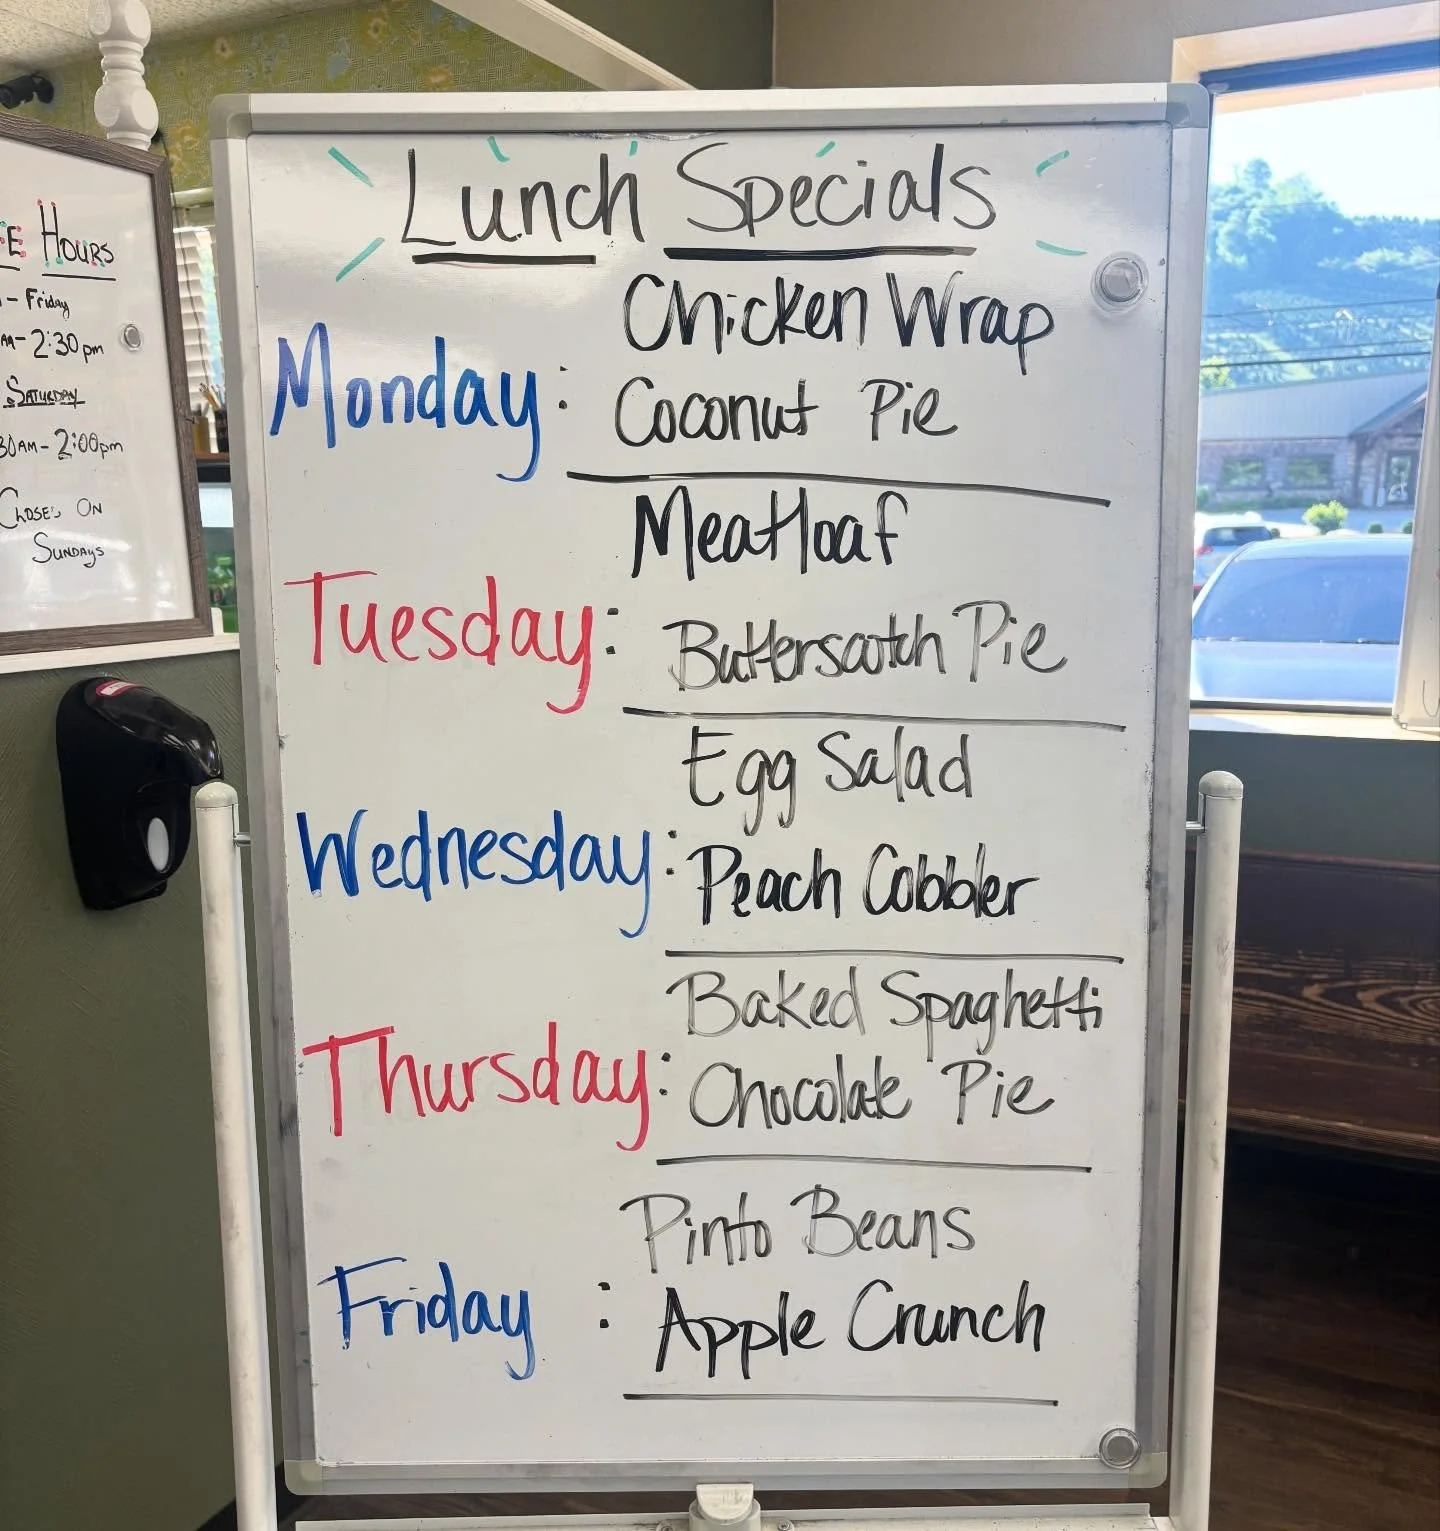 Lunch Specials
Monday:
Chicken Wrap
Coconut Pie
Tuesday:
Meatloaf
Butterscotch Pie
Wednesday:
Egg Salad
Peach Cobbler
Thursday:
Baked Spaghetti
Chocolate Pie
Friday :
Pinto Beans
Apple Crunch
HOURS
- Friday
- 2:30 pm
SATURDAY
30AM - 2:00pm
ON
SUNDAYS